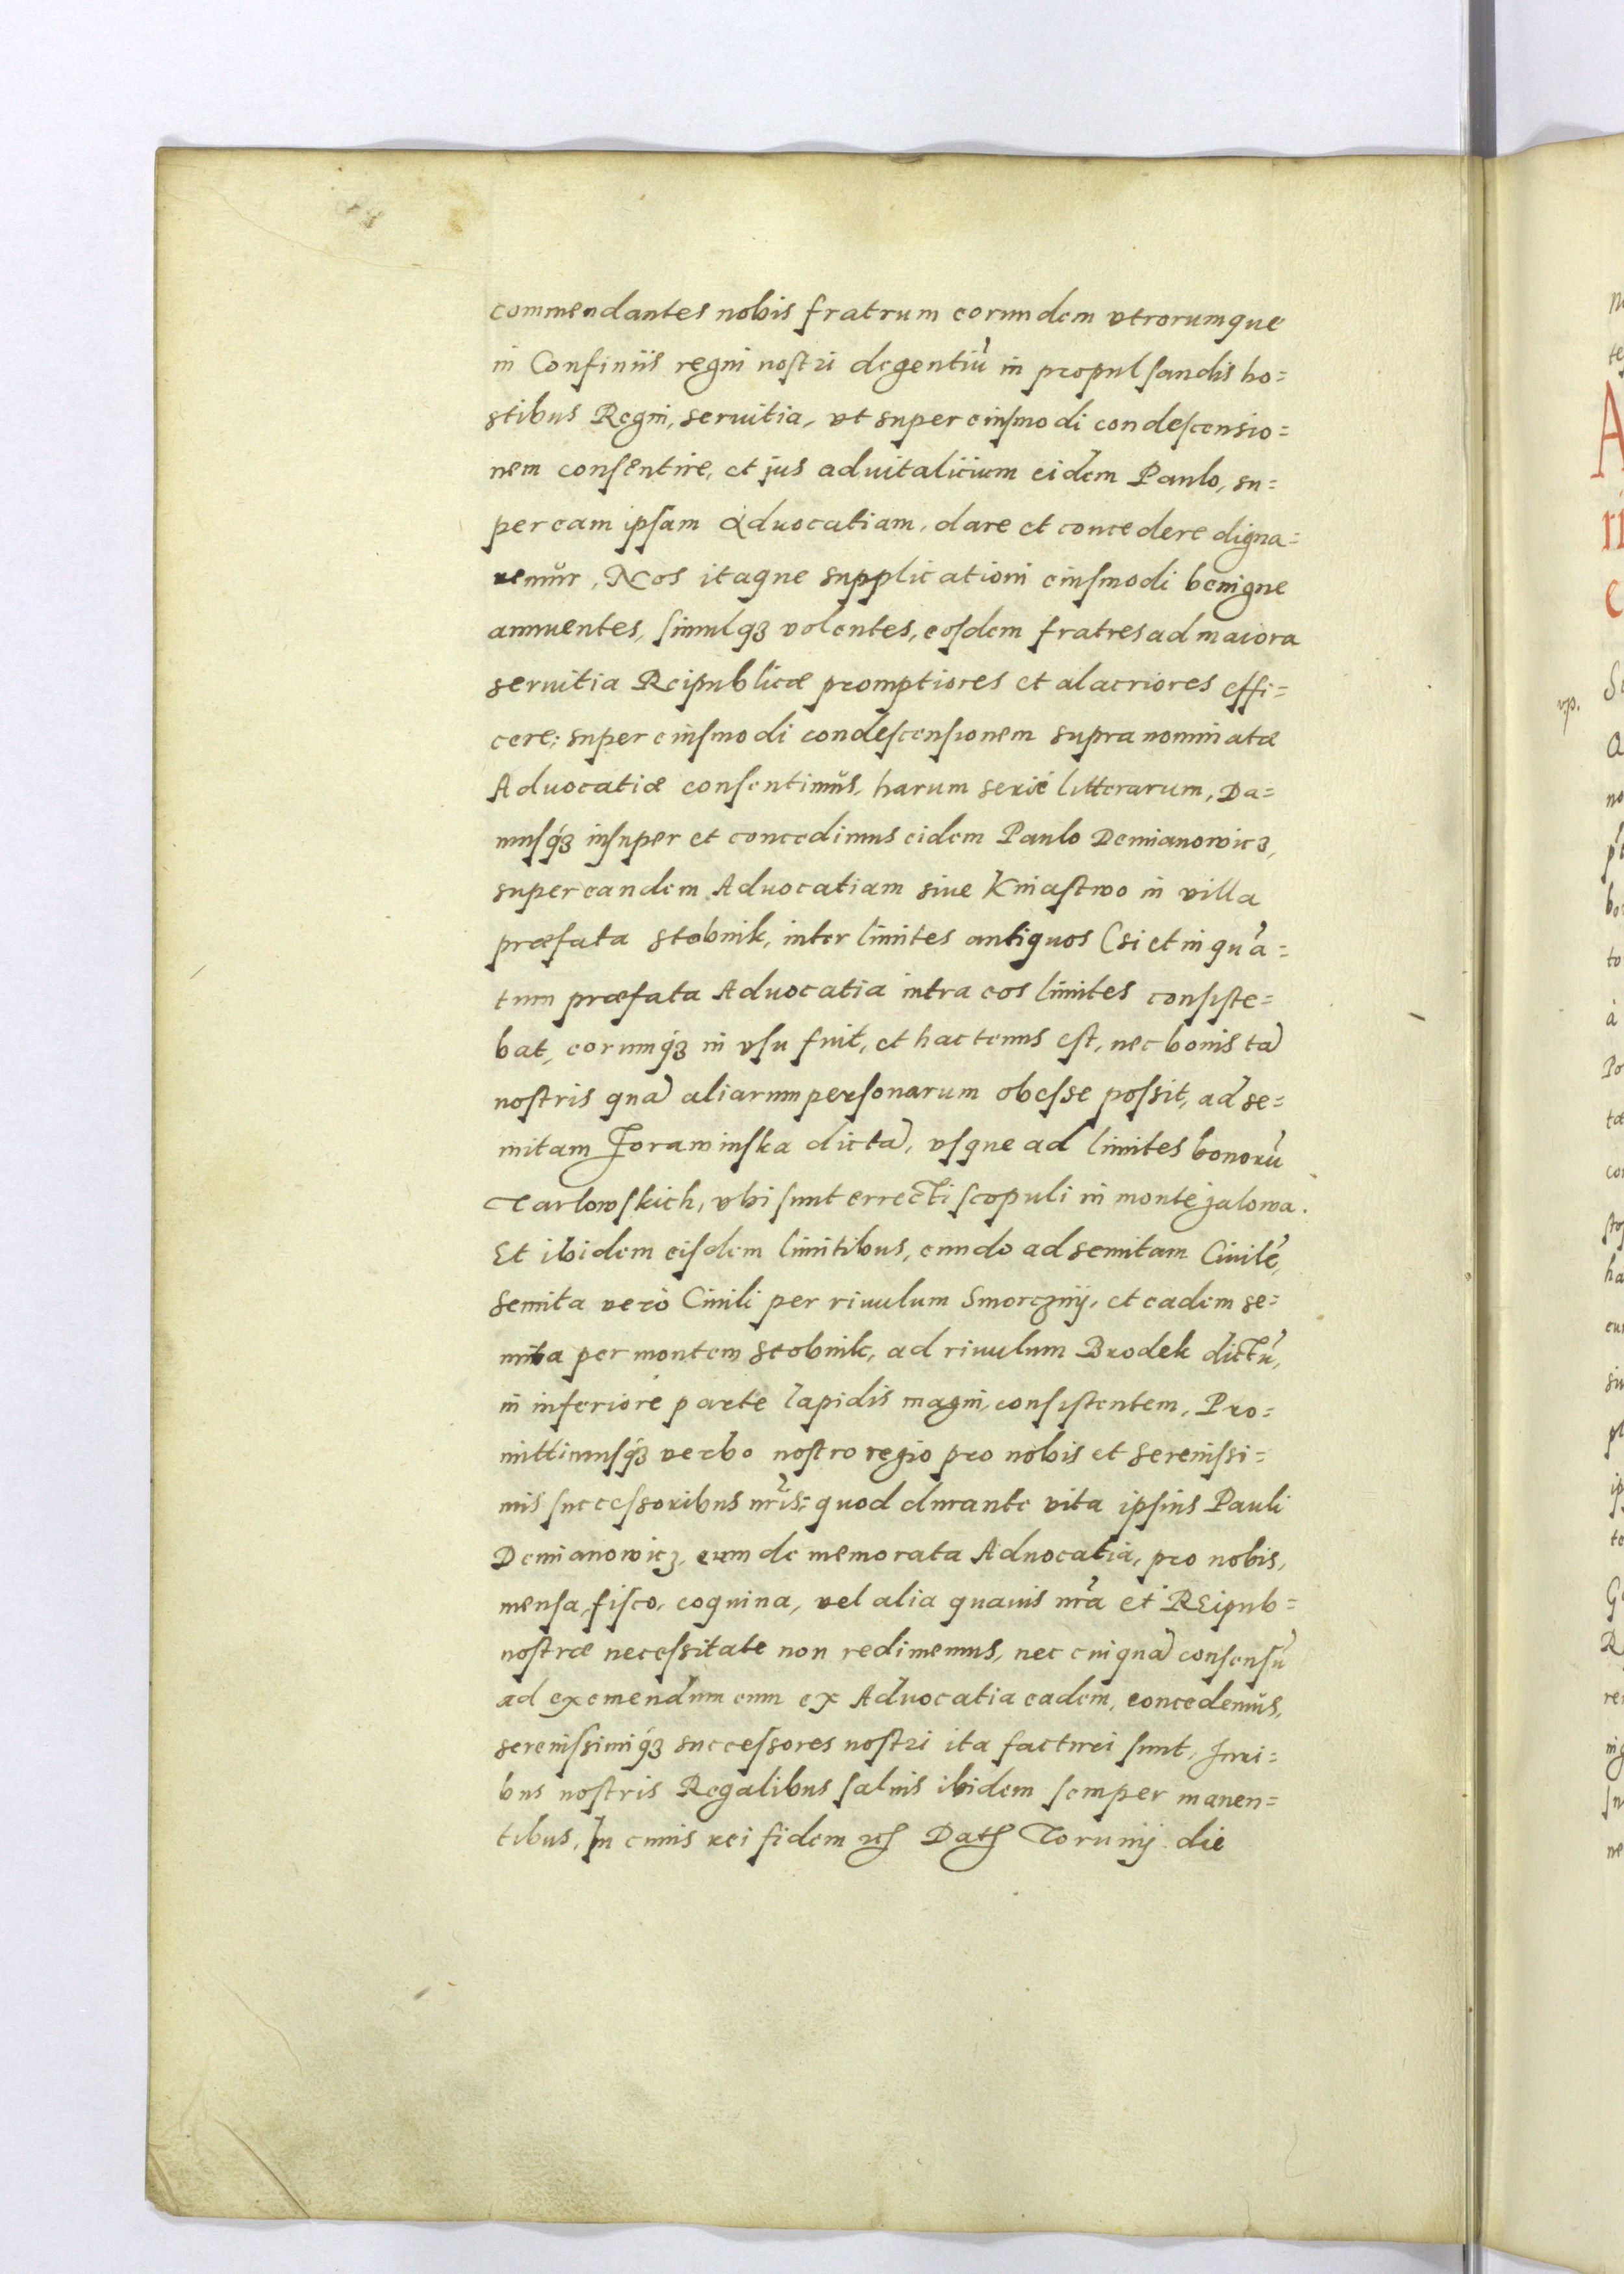 commendantes nobis fratrum eorundem vtrorumque
in Confiniis regni nostri degentiũ in propulsandis ho=
stibus Regni, seruitia, vt super eiusmodi condescensio=
nem consentire, et jus aduitalicium eidem Paulo, su=
per eam ipsam Aduocatiam, dare et concedere digna=
remur, Nos itaque supplicationi eiusmodi benigne
annuentes, simulqꝫ volentes, eosdem fratres ad maiora
seruitia Reipublicæ promptiores et alacriores effi=
cere; super eiusmodi condescensionem supra nominatæ
Aduocatiæ consentimus, harum serie litterarum, Da=
musqꝫ insuper et concedimus eidem Paulo Demianowicz,
super eandem Aduocatiam siue Kniastwo in villa
præfata Stobnik, inter limites antiquos (si et in quã=
tum præfata Aduocatia intra eos limites consiste=
bat, eorumqꝫ in vsu fuit, et hactenus est, nec bonis tã
nostris quã aliarum personarum obesse possit, ad se=
mitam Torawinska dictã, vsque ad limites bonorũ
Tarlowskich, vbi sunt errecti scopuli in monte jalowa.
Et ibidem eisdem limitibus, eundo ad semitam Ciuilẽ,
semita verò Ciuili per riuulum Smorcznij, et eadem se=
mita per montem Stobnik, ad riuulum Brodek dictũ,
in inferiore parte lapidis magni, consistentem, Pro=
mittimusqꝫ verbo nostro regio pro nobis et serenissi=
mis successoribus nr̃is; quod durante vita ipsius Pauli
Demianowicz, eum de memorata Aduocatia, pro nobis,
mensa, fisco, coquina, vel alia quauis nr̃a et REipub=
nostræ necessitate non redimemus, nec cuiquã consensũ
ad eximendum eum ex Aduocatia eadem, concedemus,
serenissimiqꝫ successores nostri ita facturi sunt, Juri=
bus nostris Regalibus saluis ibidem semper manen=
tibus, In cuius rei fidem etc Datꝭ Torunij die